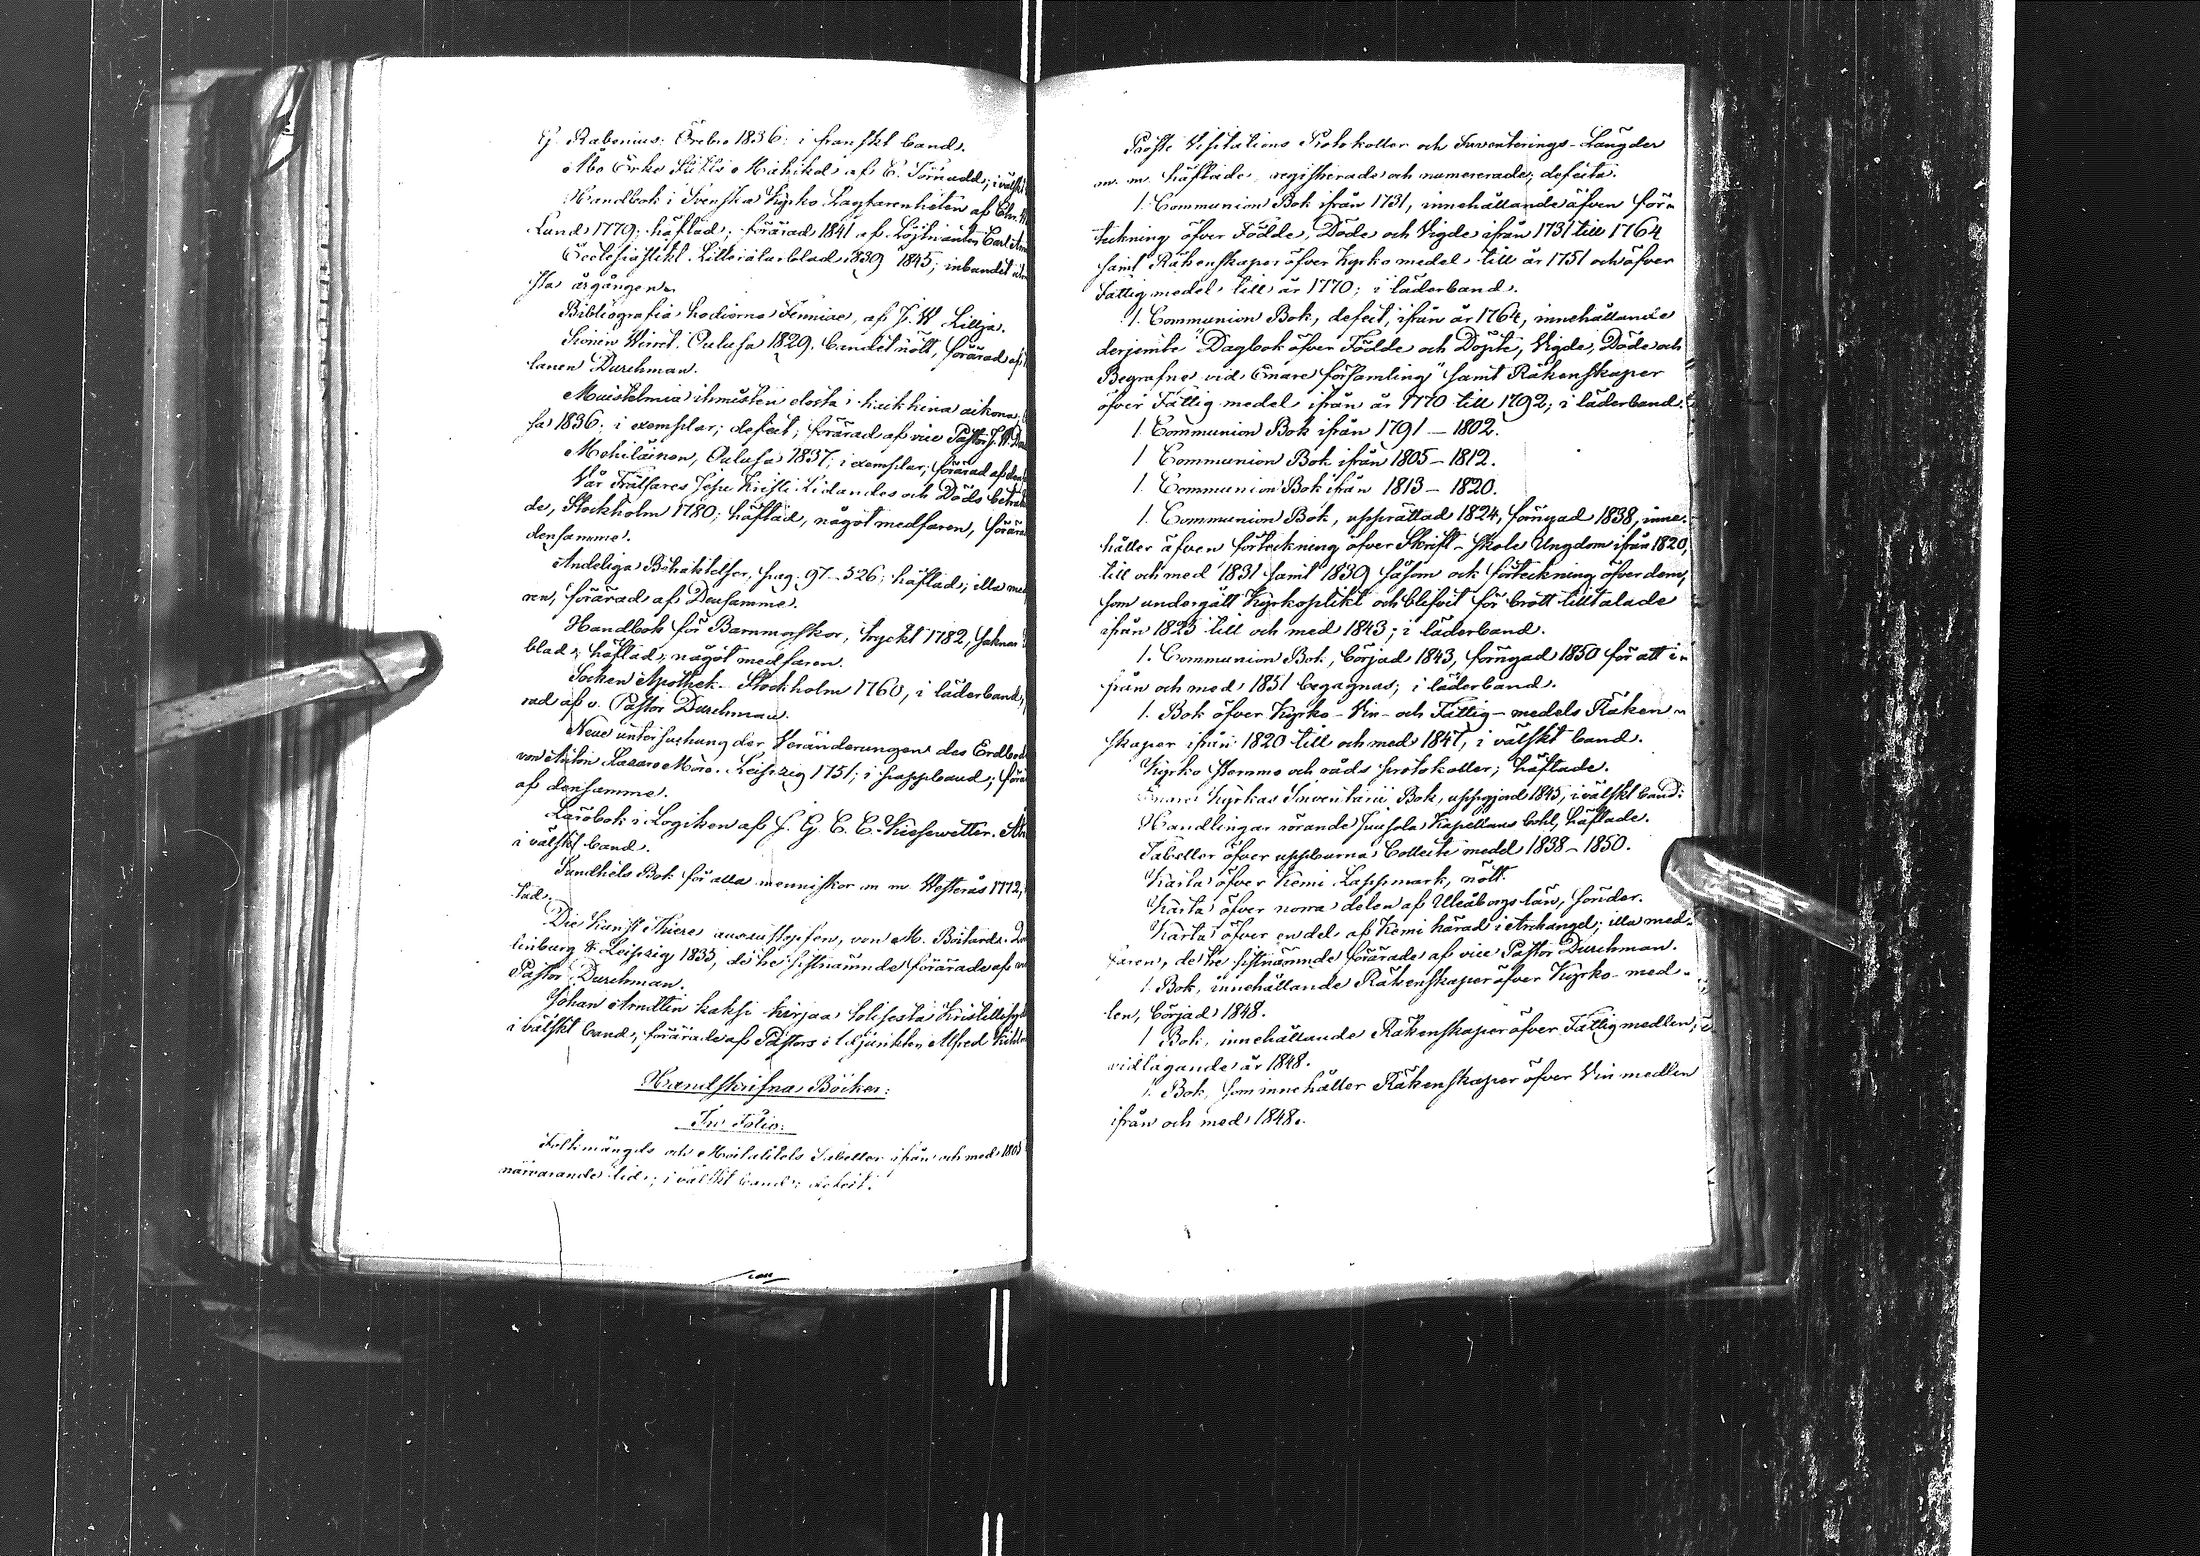 G. Rabenius. Örebro 1836. i franskt band.
Åbo Erke Stifts Matrikel af E. Törnudd; i välskt
Handbok i Svenska Kyrko Lagfarenheten af Chr.
Lund 1779; häftad; förärad 1841 af Löjtnanten Carl
Ecclesiastikt Litteraturblad 1839 1845; inbandet
sta årgångerne
Bibliografia hodierna Fenniae, af J. W. Lillja.
Sionin Wirret. Oulusa 1829. bandet nött, förärad af
lanen Durchman.
Muistelmia ihmisten elosta kaikkina aikona
sa 1836. i exemplar; defect; förärad af vice Pastor J. W.
Mehiläinen, Oulusa 1837; i exemplar; förärad af den
Vår Frälsares Jesu Kristi Lidandes och Döds beträk
de, Stockholm 1780; häftad, något medfaren, förära
densamme.
Andeliga Betraktelser, pag. 97-526; häftad; illa med
ren, förärad af Densamme.
Handbok för Barnmorskor, tryckt 1782, saknar
blad; häftad; något medfaren.
Socken Apothek. Stockholm 1760, i läderband,
rad af v. Pastor Durchman.
Neue untersuchung der Veränderungen des Erdbod
von Anton Lazaro Moro. Leipzig 1751; i pappband; förä
af densamme.
Lärobok i Logiken af J. G. C. C. Kiesewetter.
i välskt band.
Sundhets Bok för alla menniskor m m. Westerås 1772,
tad.
Die Kunst Thiere auszustopfen, von M. Boitard.
linburg & Leipzig 1835, de tre sistnämnde förärade af
Pastor Durchman.
Johan Arndtin kaksi kirjaa totisesta Kristillisyd
i välskt band, förärade af Pastors i Adjunkten Alfred
Handskrifna Böcker:
In Folio:
Folkmängds och Mortalitets Tabeller ifrån och med 1805
närvarande tid; i välskt band; defect.
Prosts Visitations Protokoller och Inventerings-Längder
m. m. häftade, registrerade och numererade; defecta.
1. Communion Bok ifrån 1731, innehållande äfven för-
teckning öfver Födde, Döde och Vigde ifrån 1731 till 1764
samt Räkenskaper öfver Kyrko medel till år 1751 och öfver
Fattig medel till år 1770; i läderband.
1. Communion Bok, defect, ifrån år 1764, innehållande
derjemte "Dagbok öfver Födde och Döpte, Vigde, Döde och
Begrafne vid Enare församling" samt Räkenskaper
öfver Fattig medel ifrån år 1770 till 1792; i läderband.
1. Communion Bok ifrån 1791 — 1802.
1 Communion Bok ifrån 1805 — 1812.
1. Communion Bok ifrån 1813 — 1820.
1. Communion Bok, upprättad 1824, förnyad 1838, inne-
håller äfven förteckning öfver Skrift-skole Ungdom ifrån 1820,
till och med 1831 samt 1839 såsom ock förteckning öfver dem,
som undergått Kyrkoplikt och blifvit för brott tilltalade
ifrån 1823 till och med 1843; i läderband.
1. Communion Bok, börjad 1843, förnyad 1850 för att i-
från och med 1851 begagnas; i läderband.
1. Bok öfver Kyrko- Vin- och Fattig-medels Räken-
skaper ifrån 1820 till och med 1847, i välskt band.
Kyrko stemmo och råds protokoller; häftade.
Enare Kyrkas Inventarii Bok, uppgjord 1845, i välskt band.
Handlingar rörande Juusola Kapellans bohl, häftade.
Tabeller öfver uppburna Collecte medel 1838 — 1850.
Karta öfver Kemi Lappmark, nött.
Karta öfver norra delen af Uleåborgs län, sönder.
Karta öfver en del af Kemi härad i Archangel; illa med-
faren, de tre sistnämnde förärade af vice Pastor Durchman.
1. Bok, innehållande Räkenskaper öfver Kyrko-med-
len, börjad 1848.
1 Bok, innehållande Räkenskaper öfver Fattigmedlen,
vidtagande år 1848.
1. Bok, som innehåller Räkenskaper öfver Vin medlen
ifrån och med 1848.